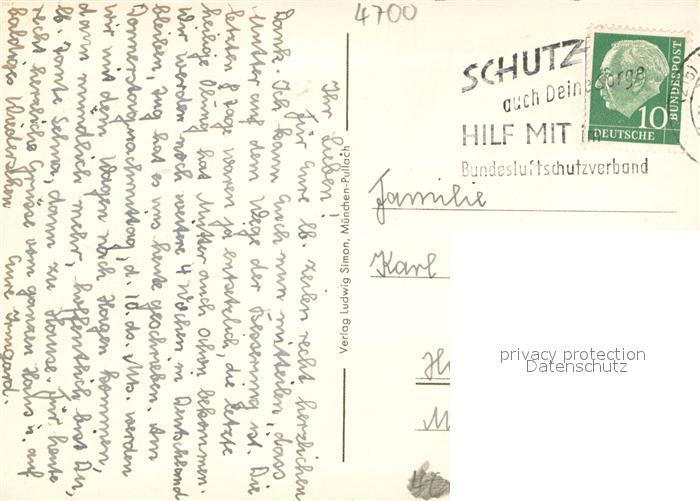 4700
Ihr Lieben!
Für Eure lb. Zeilen recht herzlichen
Dank. Ich kann Euch nun mitteilen, dass
Mutter auf dem Wege der Besserung ist. Die
letzten 8 Tage waren ja entsetzlich, die letzte
heilige Ölung hat Mutter auch schon bekommen.
Wir werden noch weitere 4 Wochen in Deutschland
bleiben, Zug hat es uns heute geschrieben. Am
Donnerstagnachmittag, d. 10. ds. Mts. werden
wir mit dem Wagen nach Hagen kommen,
dann mündlich mehr, hoffentlich bist Du,
lb. Tante Selma, dann zu Hause. Für heute
recht herzliche Grüsse vom ganzen Haus u. auf
baldiges Wiedersehen Eure Irmgard.
Verlag Ludwig Simon, München-Pullach
SCHUTZ
auch Deine Sorge
HILF MIT im
Bundesluftschutzverband
10
DEUTSCHE
BUNDESPOST
Familie
Karl
H
M
privacy protection
Datenschutz